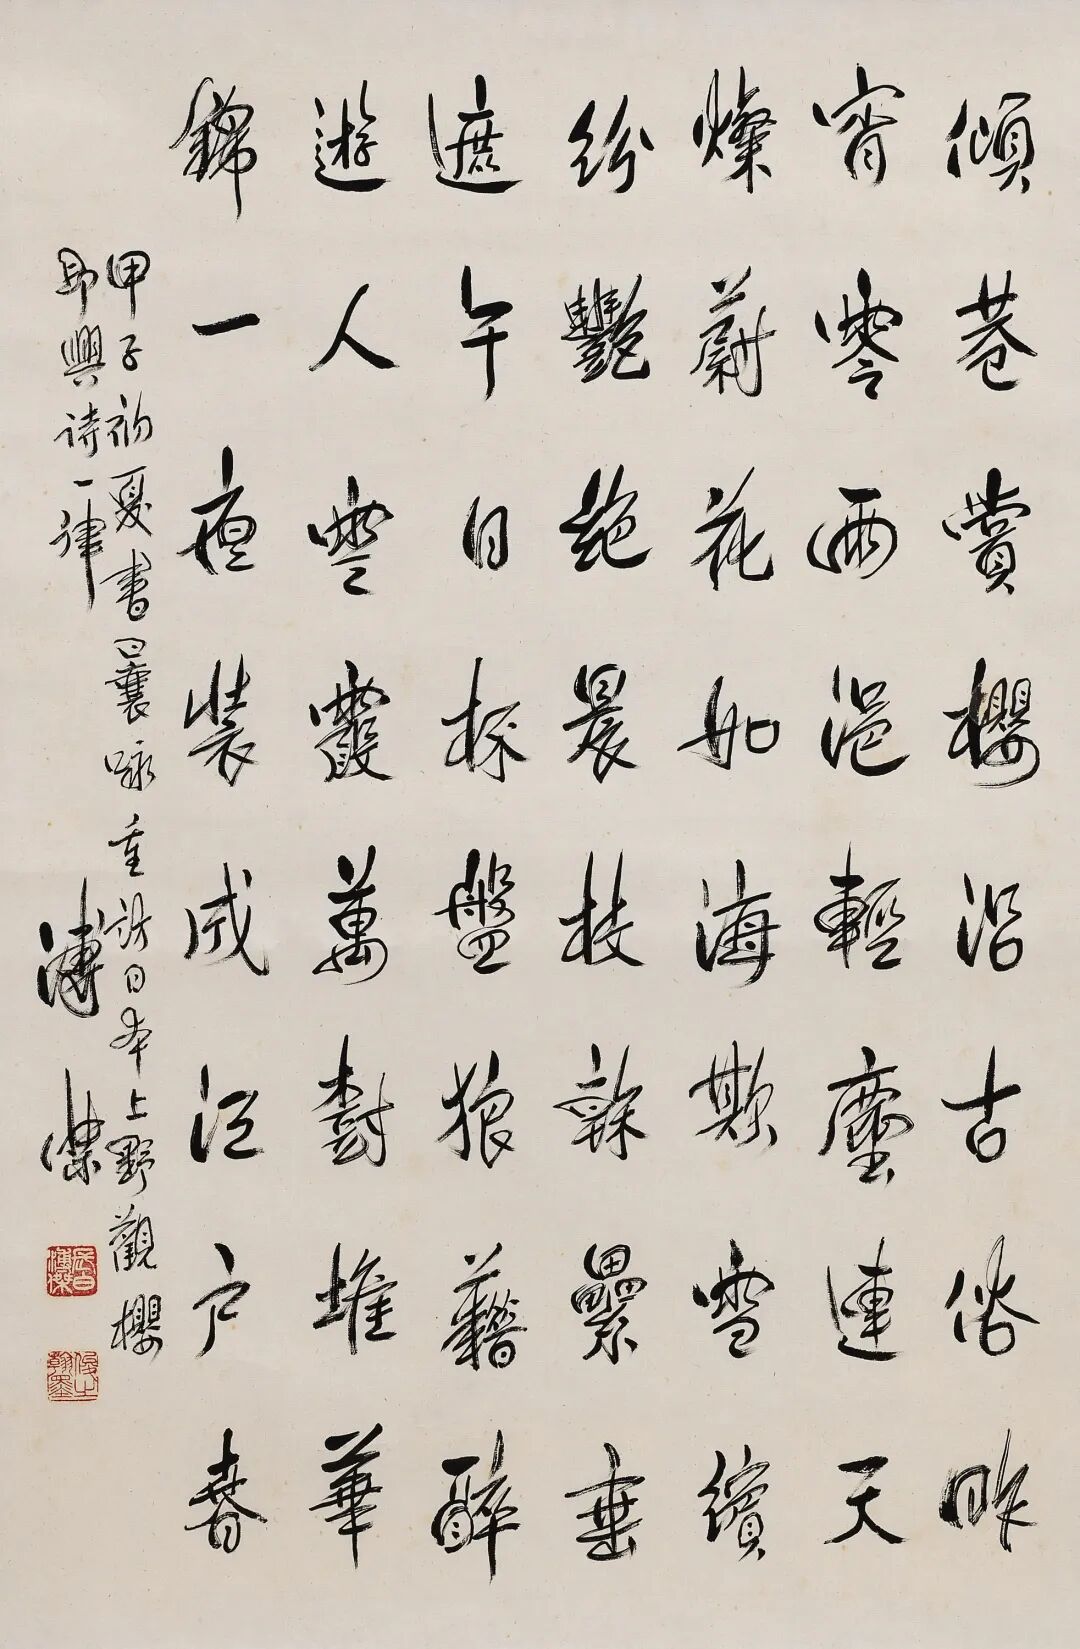 傾巷賞櫻沿古俗昨
宵零雨浥輕塵連天
燦蔚花如海欺雪繽
紛艷絕晨枝幹纍垂
遮午日杯盤狼藉醉
遊人雲霞萬樹堆華
錦一痕裝成江戶春
甲子初夏書曩詠重訪日本上野觀櫻
即興詩一律
溥傑